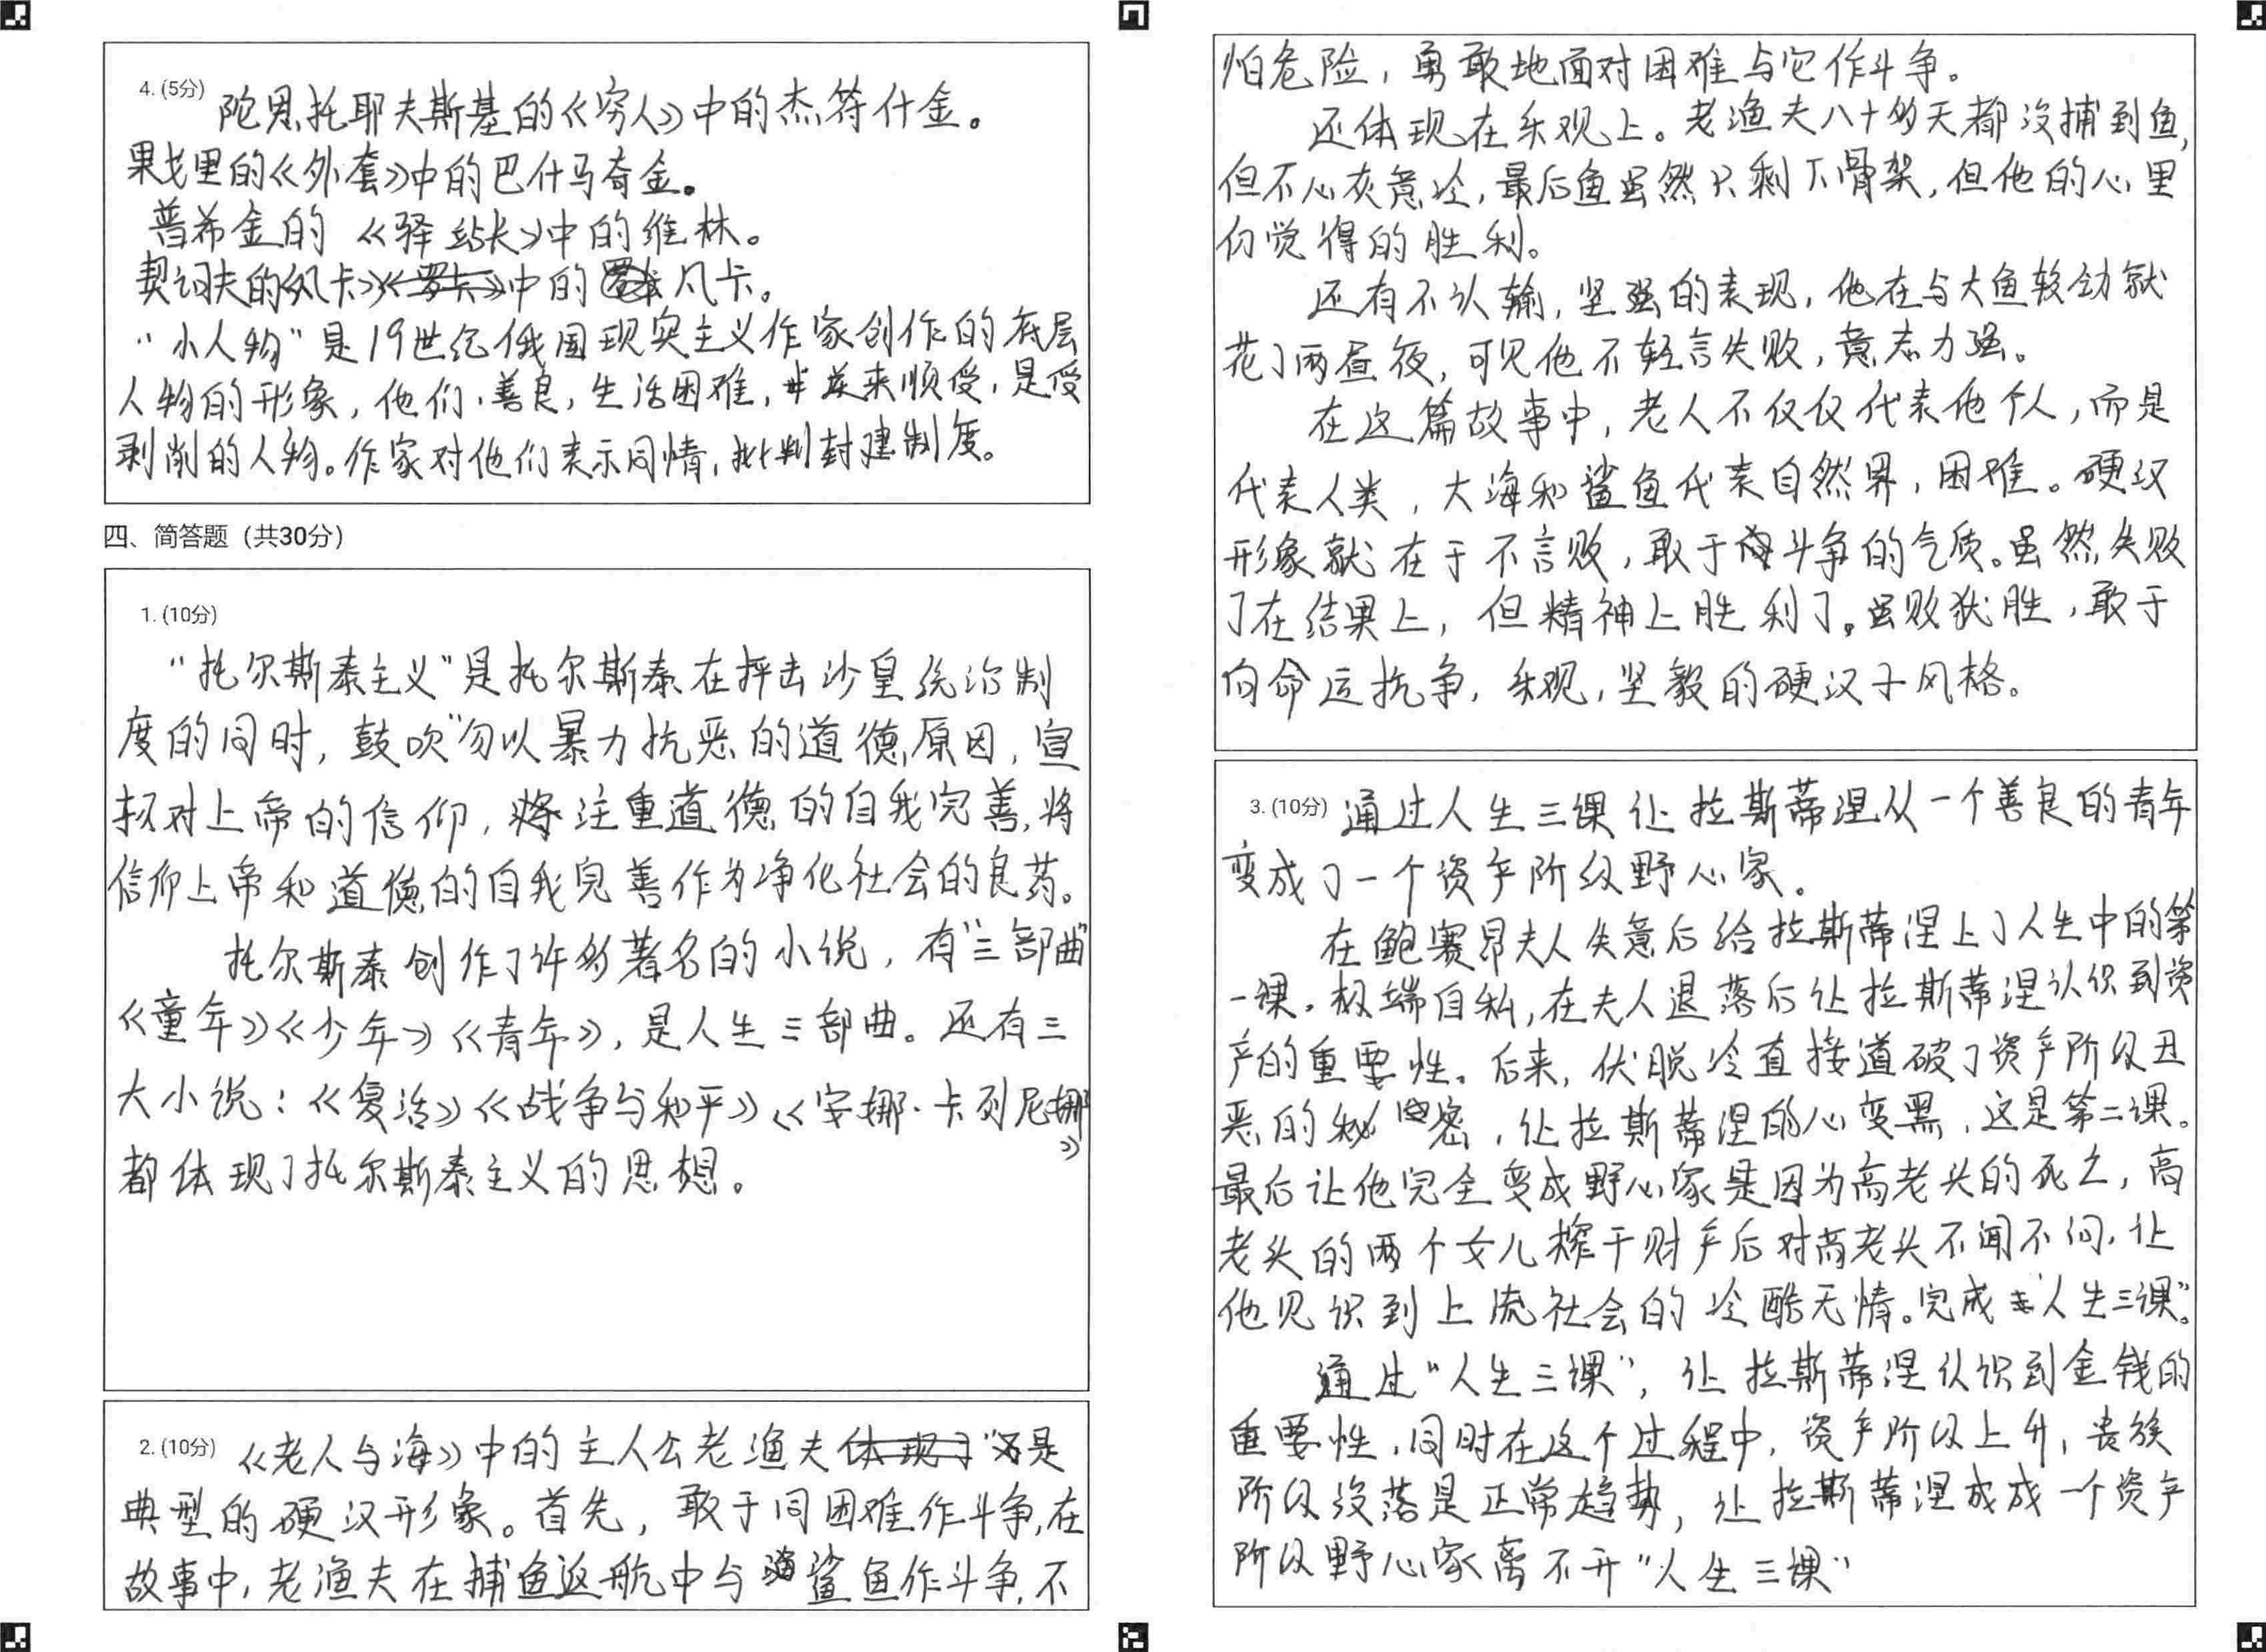 4. (5分) 陀思托耶夫斯基的《穷人》中的杰符什金。
果戈里的《外套》中的巴什马奇金。
普希金的《驿站长》中的维林。
契诃夫的《凡卡》中的凡卡。
“小人物”是19世纪俄国现实主义作家创作的底层
人物的形象，他们善良，生活困难，逆来顺受，是受
剥削的人物。作家对他们表示同情，批判封建制度。
四、简答题（共30分）
1. (10分)
“托尔斯泰主义”是托尔斯泰在抨击沙皇统治制
度的同时，鼓吹“勿以暴力抗恶的道德原因，宣
扬对上帝的信仰，注重道德的自我完善，将
信仰上帝和道德的自我完善作为净化社会的良药。
托尔斯泰创作了许多著名的小说，有“三部曲”
《童年》《少年》《青年》，是人生三部曲。还有三
大小说：《复活》《战争与和平》《安娜·卡列尼娜
》
都体现了托尔斯泰主义的思想。
2. (10分) 《老人与海》中的主人公老渔夫是
典型的硬汉形象。首先，敢于同困难作斗争，在
故事中，老渔夫在捕鱼返航中与鲨鱼作斗争，不
怕危险，勇敢地面对困难与它作斗争。
还体现在乐观上。老渔夫八十多天都没捕到鱼，
但不心灰意冷，最后鱼虽然只剩下骨架，但他的心里
仍觉得的胜利。
还有不认输，坚强的表现，他在与大鱼较劲就
花了两昼夜，可见他不轻言失败，意志力强。
在这篇故事中，老人不仅仅代表他个人，而是
代表人类，大海和鲨鱼代表自然界，困难。硬汉
形象就在于不言败，敢于斗争的气质。虽然失败
了在结果上，但精神上胜利了。虽败犹胜，敢于
向命运抗争，乐观，坚毅的硬汉子风格。
3. (10分) 通过人生三课让拉斯蒂涅从一个善良的青年
变成了一个资产阶级野心家。
在鲍赛昂夫人失意后给拉斯蒂涅上了人生中的第
一课，极端自私，在夫人退落后让拉斯蒂涅认识到资
产的重要性。后来，伏脱冷直接道破了资产阶级丑
恶的秘密，让拉斯蒂涅的心变黑，这是第二课。
最后让他完全变成野心家是因为高老头的死亡，高
老头的两个女儿榨干财产后对高老头不闻不问，让
他见识到上流社会的冷酷无情。完成“人生三课”。
通过“人生三课”，让拉斯蒂涅认识到金钱的
重要性，同时在这个过程中，资产阶级上升，贵族
阶级没落是正常趋势，让拉斯蒂涅成成一个资产
阶级野心家离不开“人生三课”